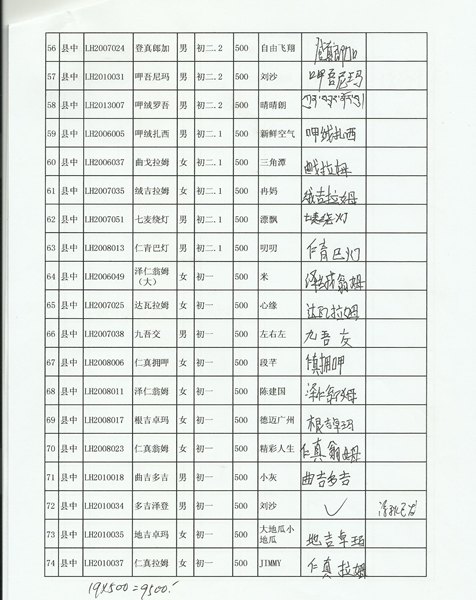 56 县中 LH2007024 登真郎加 男 初二.2 500 自由飞翔 登真郎加
57 县中 LH2010031 呷吾尼玛 男 初二.2 500 刘沙 呷吾尼玛
58 县中 LH2013007 呷绒罗吾 男 初二.2 500 晴晴朗
59 县中 LH2006005 呷绒扎西 男 初二.1 500 新鲜空气 呷绒扎西
60 县中 LH2006037 曲戈拉姆 女 初二.1 500 三角潭 拉姆
61 县中 LH2007035 绒吉拉姆 女 初二.1 500 冉妈 绒吉拉姆
62 县中 LH2007051 七麦绕灯 男 初二.1 500 漂飘 绕灯
63 县中 LH2008013 仁青巴灯 男 初二.1 500 叨叨 仁青巴灯
64 县中 LH2006049 泽仁翁姆（大） 女 初一 500 米 泽仁翁姆
65 县中 LH2007025 达瓦拉姆 女 初一 500 心缘 达瓦拉姆
66 县中 LH2007038 九吾交 男 初一 500 左右左 九吾交
67 县中 LH2008006 仁真拥呷 女 初一 500 段芊 仁真拥呷
68 县中 LH2008011 泽仁翁姆 女 初一 500 陈建国 泽仁翁姆
69 县中 LH2008017 根吉卓玛 女 初一 500 德迈广州 根吉卓玛
70 县中 LH2008023 仁真翁姆 女 初一 500 精彩人生 仁真翁姆
71 县中 LH2010018 曲吉多吉 男 初一 500 小灰 曲吉多吉
72 县中 LH2010034 多吉泽登 男 初一 500 刘沙 ✓
73 县中 LH2010035 地吉卓玛 女 初一 500 大地瓜小地瓜 地吉卓玛
74 县中 LH2010037 仁真拉姆 女 初一 500 JIMMY 仁真拉姆
19×500=9500.